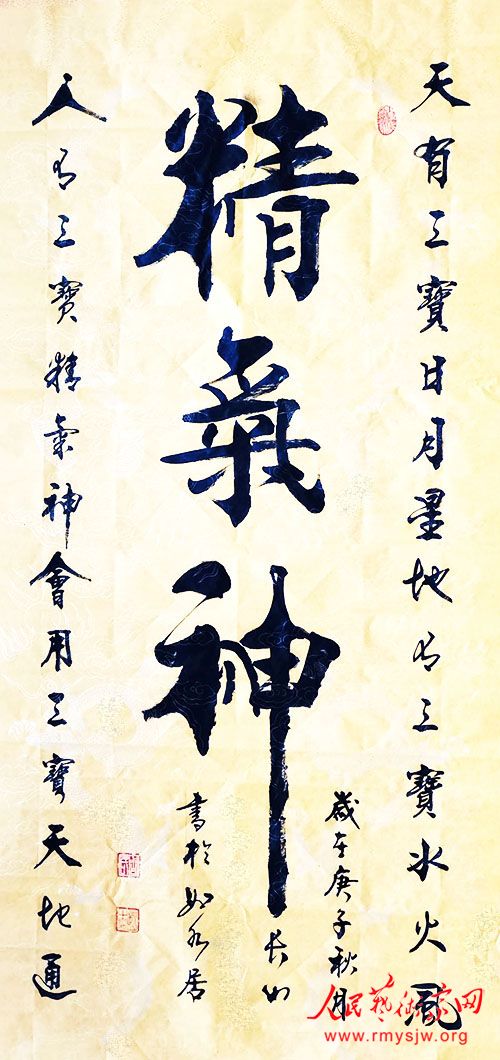 天有三寶日月星地有三寶水火風
精氣神
歲在庚子秋月
書於如居
人有三寶精氣神會用三寶天地通
人民藝術家网
www.rmysjw.org